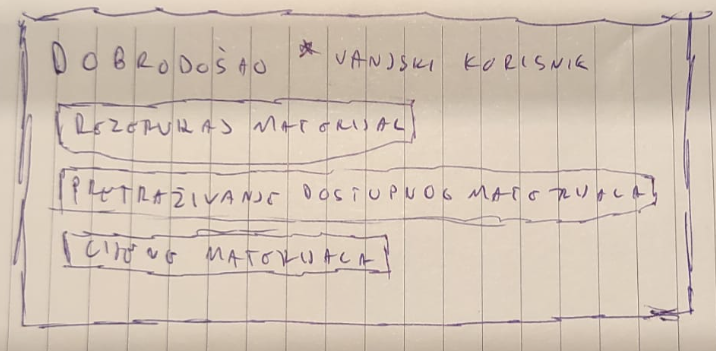 DOBRODOŠAO * VANJSKI KORISNIK
REZERVIRAJ MATERIJAL
PRETRAŽIVANJE DOSTUPNOG MATERIJALA
CIJENE MATERIJALA